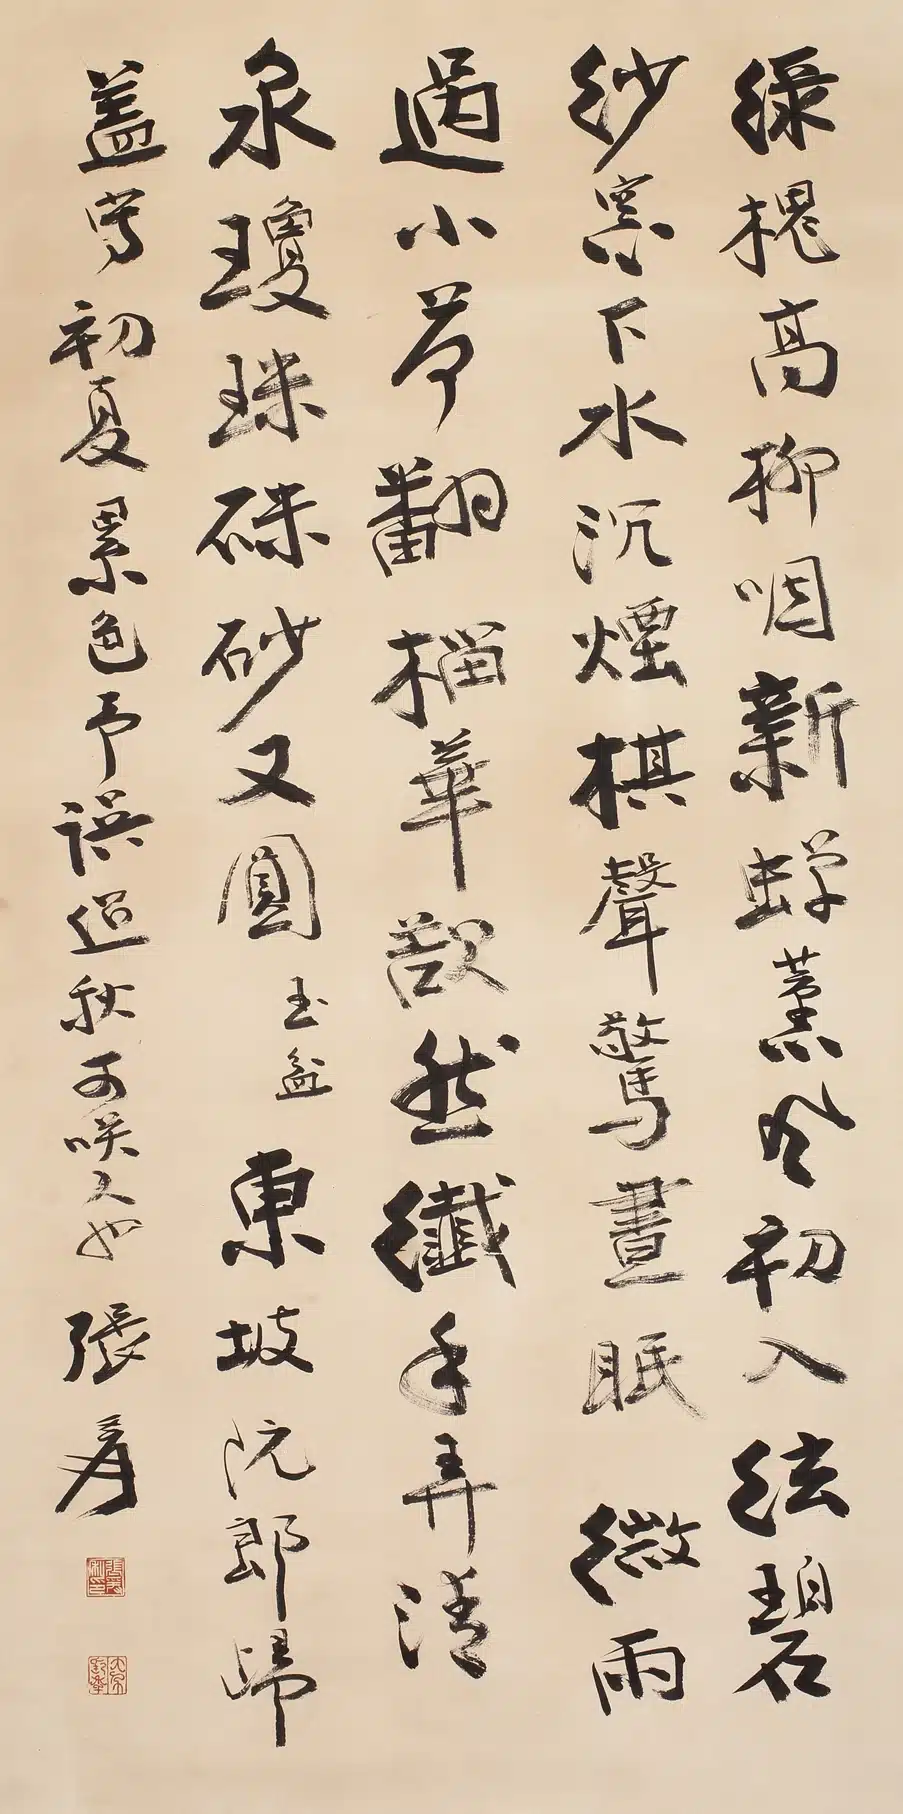 綠槐高柳咽新蟬薰風初入絃碧
紗窗下水沉煙棋聲驚晝眠微雨
過小荷翻榴華然纖手弄清
泉瓊珠硃砂又圓玉盆東坡阮郎歸
蓋寫初夏景色予誤秋可咲人也張爰